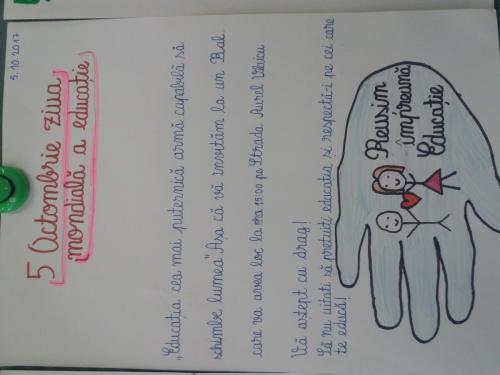 5.10.2017
5 Octombrie ziua
mondială a educație
„Educația cea mai puternică armă capabilă să
schimbe lumea” Așa că vă invităm la un Bal
care va avea loc la ora 15:00 pe Strada Aurel Vlaicu
Vă aștept cu drag!
Să nu uitați să prețuiți educația și respectă-i pe cei care
te educă!
Reusim
împreună
Educație